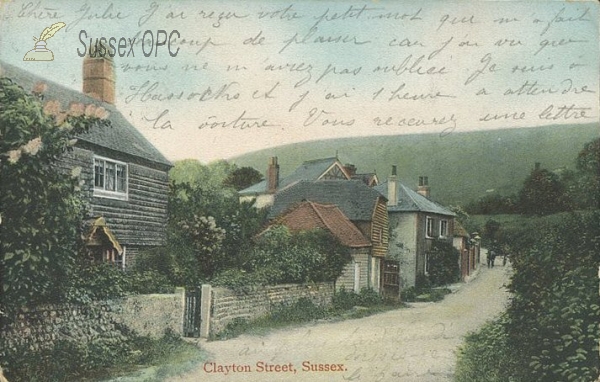 Chère Julie J'ai reçu votre petit mot qui m'a fait
Sussex OPC
beaucoup de plaisir car j'ai vu que
vous ne m'aviez pas oubliée Je suis à
Hassocks et j'ai 1 heure a attendre
la voiture. Vous recevrez une lettre
Clayton Street, Sussex.